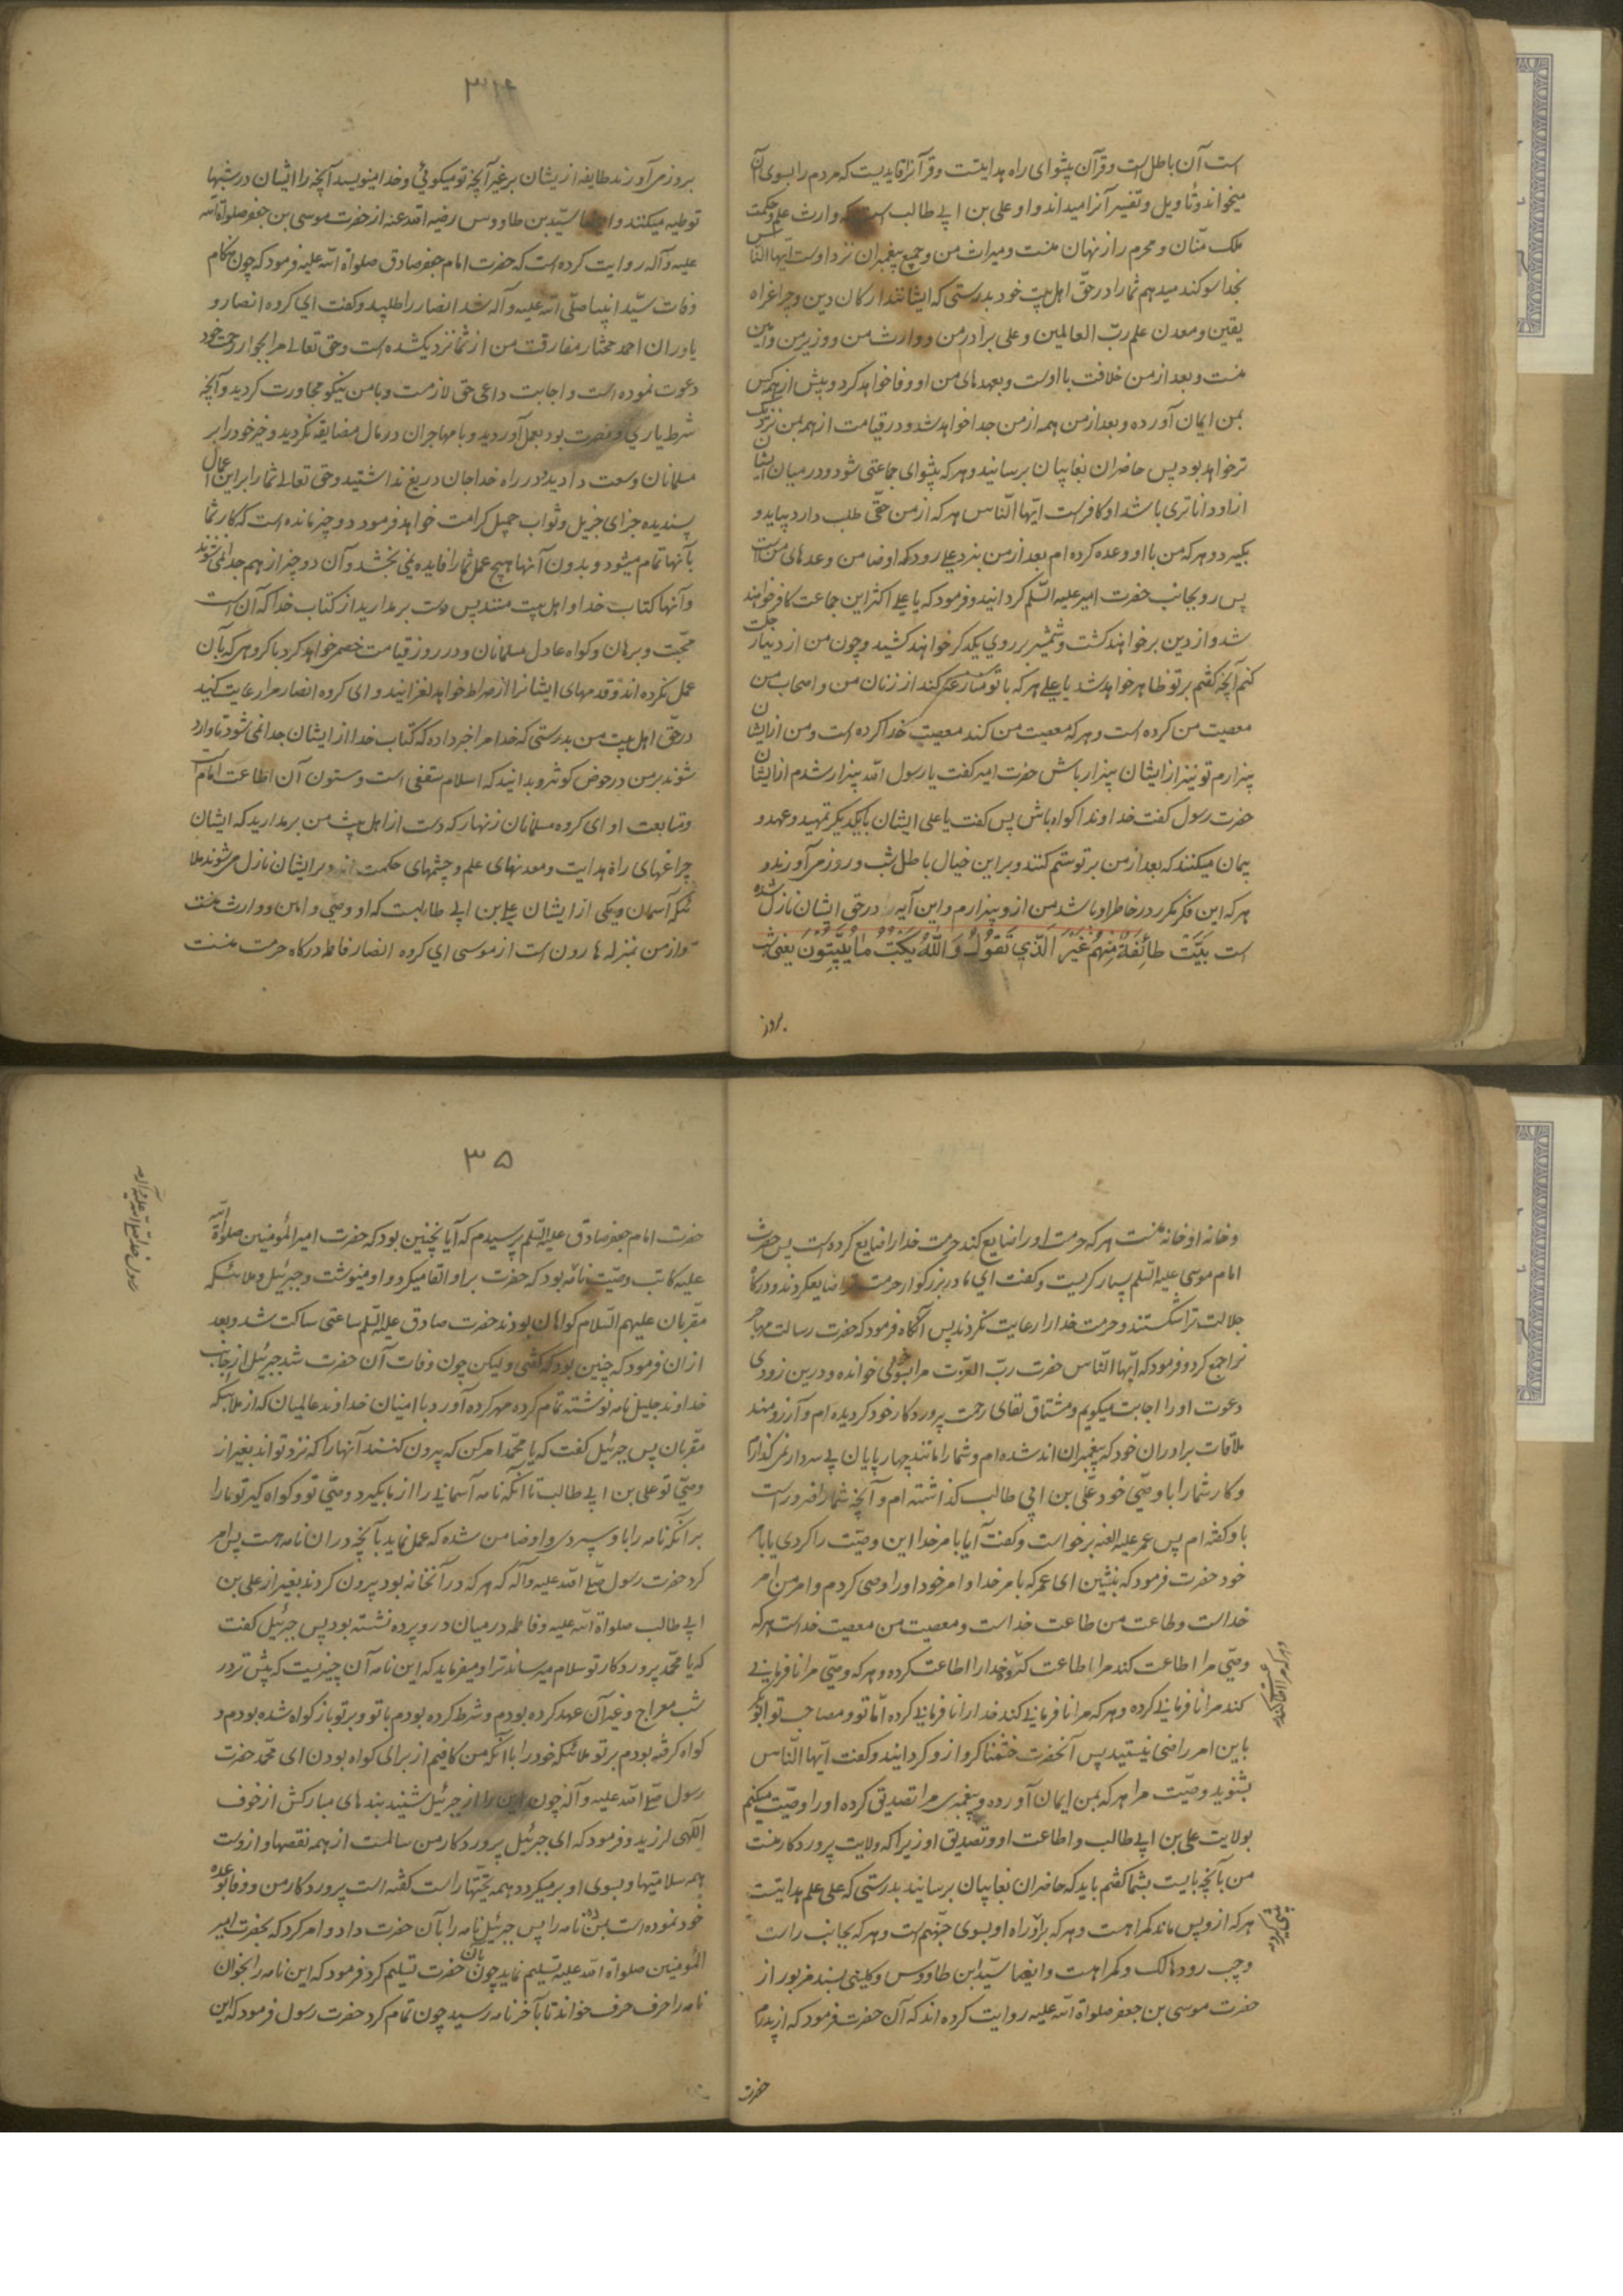 است آن باطل است و قرآن پیشوای راه هدایتست و قرآنرا قایدیست که مردم را بسوی آن
میخواند و تأویل و تفسیر آنرا میداند و او علی بن ابی طالب است که وارث علم و حکمت
ملک منّان و محرم راز نهان منست و میراث من و جمیع پیغمبران نزد اوست ایّها النّاس
بخدا سوکند میدهم شما را در حقّ اهل بیت خود بدرستی که ایشانند ارکان دین و چراغ راه
یقین و معدن علم ربّ العالمین و علی برادر من و وارث من و وزیر من و امین
منست و بعد از من خلافت با اوست و بعهدهای من او وفا خواهد کرد و پیش از همه کس
بمن ایمان آورده و بعد از من همه از من جدا خواهد شد و در قیامت از همه بمن نزدیک
تر خواهد بود پس حاضران بغایبان برسانید و هر که پیشوای جماعتی شود و در میان ایشان
از او داناتری باشد او کافر است ایّها النّاس هر که از من حقّی طلب دارد بیاید و
بکیرد و هر که من با او وعده کرده ام بعد از من بنزد علی رود که او ضامن وعدهای من است
پس رو بجانب حضرت امیر علیه السّلم کردانید و فرمود که یا علی اکثر این جماعت کافر خواهند
شد و از دین بر خواهند کشت و شمشیر بر روی یکدکر خواهند کشید و چون من از دنیا رحلت
کنم آنچه کفتم بر تو ظاهر خواهد شد یا علی هر که با تو منازعه کند از زنان من و اصحاب من
معصیت من کرده است و هر که معصیت من کند معصیت خدا کرده است و من از ایشان
بیزارم تو نیز از ایشان بیزار باش حضرت امیر کفت یا رسول الله بیزار شدم از ایشان
حضرت رسول کفت خداوندا کواه باش پس کفت یا علی ایشان با یکدیکر تمهید و عهد و
پیمان میکنند که بعد از من بر تو ستم کنند و بر این خیال باطل شب و روز می آورند و
هر که این فکر مکر در خاطر او باشد من از و بیزارم و این آیه در حق ایشان نازل شده
است بَيَّتَ طَائِفَةٌ مِنْهُمْ غَيْرَ الَّذِي تَقُولُ وَاللَّهُ يَكْتُبُ مَا يُبَيِّتُونَ یعنی شب
بروز
۳۴
بروز می آورند طایفه از یشان بر غیر آنچه تو میکوئی و خدا مینویسد آنچه را ایشان در شبها
توطیه میکنند و ایضا سیّد بن طاووس رضی الله عنه از حضرت موسی بن جعفر صلواة الله
علیه و آله روایت کرده است که حضرت امام جعفر صادق صلواة الله علیه فرمود که چون هنکام
وفات سیّد انبیا صلّی الله علیه و آله شد انصار را طلبید و کفت ای کروه انصار و
یاوران احمد مختار مفارقت من از شما نزدیک شده است و حق تعالی مرا بجوار رحمت خود
دعوت نموده است و اجابت داعی حق لازمست و با من نیکو مجاورت کردید و آنچه
شرط یاری و نصرت بود بعمل آوردید و با مهاجران در مال مضایقه نکردید و خیر خود را بر
مسلمانان وسعت دادید و در راه خدا جان دریغ نداشتید و حق تعالی شما را بر این اعمال
پسندیده جزای جزیل و ثواب جمیل کرامت خواهد فرمود دو چیز مانده است که کار شما
بآنها تمام میشود و بدون آنها هیچ عمل شما را فایده نمی بخشد و آن دو چیز از هم جدا نمی شوند
و آنها کتاب خدا و اهل بیت منند پس دست بر مدارید از کتاب خدا که آن است
حجّت و برهان و کواه عادل مسلمانان و در روز قیامت خصمی خواهد کرد با کروهی که بآن
عمل نکرده اند و قدمهای ایشانرا از صراط خواهد لغزانید و ای کروه انصار مرا رعایت کنید
در حقّ اهل بیت من بدرستی که خدا مرا خبر داده که کتاب خدا از ایشان جدا نمی شود تا وارد
شوند بر من در حوض کوثر و بدانید که اسلام سقفی است و ستون آن اطاعت امام است
و متابعت او ای کروه مسلمانان زنهار که دست از اهل بیت من بر مدارید که ایشان
چراغهای راه هدایت و معدنهای علم و چشمهای حکمت اند و بر ایشان نازل می شوند ملا
ئکه آسمان و یکی از ایشان علی بن ابی طالبست که او وصّی و امین و وارث منست
و از من بمنزله هارون است از موسی ای کروه انصار فاطمه درکاه حرمت منست
و خانه او خانه منست هر که حرمت او را ضایع کند حرمت خدا را ضایع کرده است پس حضرت
امام موسی علیه السّلم بسیار کریست و کفت ای مادر بزرکوار حرمت ترا ضایع کردند و درکاه
جلالت ترا شکستند و حرمت خدا را رعایت نکردند پس آنکاه فرمود که حضرت رسالت مهاجر
نرا جمع کرد و فرمود که ایّها النّاس حضرت ربّ العزّت مرا بسوی خوانده و در ین زودی
دعوت او را اجابت میکویم و مشتاق لقای رحمت پروردکار خود کردیده ام و آرزومند
ملاقات برادران خود که پیغمبران اند شده ام و شما را مانند چهارپایان بی سردار نمی کذارم
و کار شما را با وصّی خود علّی بن ابی طالب کذاشته ام و آنچه شما را ضرور است
با و کفته ام پس عمر علیه العنه برخواست و کفت آیا بامر خدا این وصیّت را کردی یا بامر
خود حضرت فرمود که بنشین ای عمر که بامر خدا و امر خود او را وصی کردم و امر من امر
خداست و طاعت من طاعت خداست و معصیت من معصیت خداست هر که
وصّی مرا اطاعت کند مرا اطاعت کرده خدا را اطاعت کرده و هر که وصّی مرا نافرمانی
کند مرا نافرمانی کرده و هر که مرا نافرمانی کند خدا را نافرمانی کرده امّا تو و مصاحب تو ابو بکر
باین امر راضی نیستید پس آنحضرت خشمناک رو از و کردانید و کفت ایّها النّاس
بشنوید وصیّت مرا هر که بمن ایمان آورده و پیغمبری مرا تصدیق کرده او را وصیّت میکنم
بولایت علی بن ابی طالب و اطاعت او و تصدیق او زیرا که ولایت پروردکار منست
من بآنچه بایست بشما کفتم باید که حاضران بغایبان برسانید بدرستی که علی علم هدایتست
هر که از و پس ماند کمراهست و هر که براو راه او بسوی جهنّم است و هر که بجانب راست
و چپ رود هالک و کمراهست و ایضا سیّد ابن طاووس و کلینی بسند مزبور از
حضرت موسی بن جعفر صلواة الله علیه روایت کرده اند که آن حضرت فرمود که از پدرم
حضرت
۳۵
رسول خدا صلی الله علیه و آله
حضرت امام جعفر صادق علیه السّلم پرسیدم که آیا نچنین بود که حضرت امیر المؤمنین صلواة الله
علیه کاتب وصیّت نامه بود که حضرت بر او القا میکرد و او مینوشت و جبرئیل و ملائکه
مقرّبان علیهم السّلام کواهان بودند حضرت صادق علیه السّلم ساعتی ساکت شد و بعد
از ان فرمود که چنین بود که کفتی و لیکن چون وفات آن حضرت شد جبرئیل از جانب
خداوند جلیل نامه نوشته تمام کرده مهر کرده آورد با امینان خداوند عالمیان که از ملائکه
مقرّبان پس جبرئیل کفت که یا محمّد امر کن که بیرون کنند آنها را که نزد تواند بغیر از
وصّی تو علی بن ابی طالب تا آنکه نامه آسمانی را از ما بکیرد وصّی تو و کواه کیر تو ما را
بر آنکه نامه را با و سپردی و او ضامن شده که عمل نماید بآنچه در ان نامه هست پس امر
کرد حضرت رسول صلّی الله علیه و آله که هر که در آنخانه بود بیرون کردند بغیر از علی بن
ابی طالب صلواة الله علیه و فاطمه در میان در و پرده نشسته بود پس جبرئیل کفت
که یا محمّد پروردکار تو سلام میرساند ترا و میفرماید که این نامه آن چیزیست که پیش تر در
شب معراج و غیر آن عهد کرده بودم و شرط کرده بودم با تو و بر تو باز کواه شده بودم و
کواه کرفته بودم بر تو ملائکه خود را با آنکه من کافیم از برای کواه بودن ای محمّد حضرت
رسول صلّی الله علیه و آله چون این را از جبرئیل شنید بندهای مبارکش از خوف
الهی لرزید و فرمود که ای جبرئیل پروردکار من سالمست از همه نقصها و از وست
همه سلامتیها و بسوی او بر میکردد همه تحیّتها راست کفته است پروردکار من و وفا بوعده
خود نموده است بمن ده نامه را پس جبرئیل نامه را بآن حضرت داد و امر کرد که بحضرت امیر
المؤمنین صلواة الله علیه تسلیم نماید چون بآن حضرت تسلیم کرد فرمود که این نامه را بخوان
نامه را حرف حرف خواند تا بآخر نامه رسید چون تمام کرد حضرت رسول فرمود که این